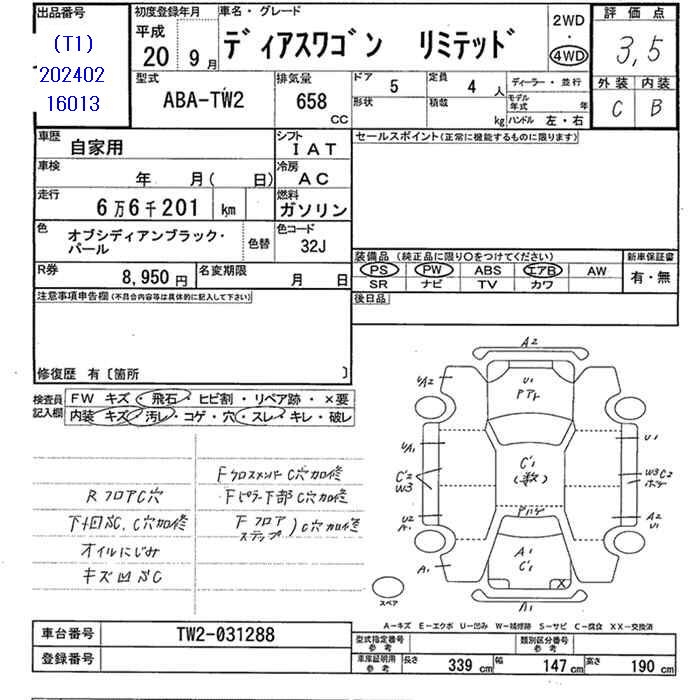 出品番号
(T1)
202402
16013
初度登録年月
平成
20 9月
車名・グレード
ディアスワゴン リミテッド
2WD
・
4WD
評価点
3,5
外装 内装
C B
型式
ABA-TW2
排気量
658
CC
ドア
5
定員
4人
形状
積載
kg
ディーラー・並行
モデル年式 年
ハンドル 左・右
車歴
自家用
シフト
IAT
車検
年 月( 日)
冷房
AC
走行
6万6千201 km
燃料
ガソリン
色
オブシディアンブラック・
パール
色替
色コード
32J
R券
8,950円
名変期限
月 日
セールスポイント(正常に機能するものに限ります)
装備品(純正品に限り○をつけてください)
PS PW ABS エアB AW
SR ナビ TV カワ
新車保証書
有・無
後日品
注意事項申告欄(不具合内容等は具体的に記入して下さい)
修復歴 有〔箇所 〕
検査員
記入欄
FW キズ・飛石・ヒビ割・リペア跡・×要
内装 キズ・汚レ・コゲ・穴・スレ・キレ・破レ
Fクロスメンバー C穴加修
RフロアC穴
Fピラー下部C穴加修
下廻りC、C穴加修
Fフロア
ステップ)C穴加修
オイルにじみ
キズ凹C
A2
UA2
U1
UA1
U1
C'2
W3
C'1
(数)
W3C2
U2
A1
A2
U1
A1
C'1
X
A1
A1
スペア
A-キズ E-エクボ U-凹み W-補修跡 S-サビ C-腐食 XX-交換済
車台番号
TW2-031288
登録番号
型式指定番号
参考
類別区分番号
参考
車庫証明用
参考
長さ 339cm 幅 147cm 高さ 190cm